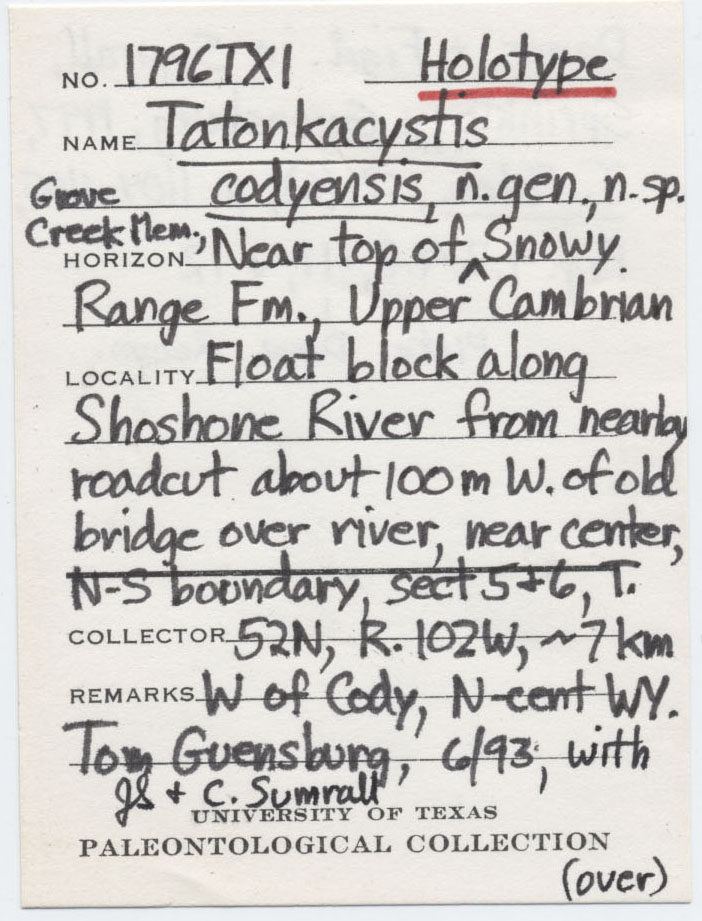 NO. 1796TX1 Holotype
NAME Tatonkacystis
codyensis, n.gen., n.sp.
Grove
Creek Mem.,
HORIZON Near top of ^ Snowy
Range Fm., Upper Cambrian
LOCALITY Float block along
Shoshone River from nearby
roadcut about 100m W. of old
bridge over river, near center,
N-S boundary, sect 5+6, T.
COLLECTOR 52N, R. 102W, ~7km
REMARKS W of Cody, N-cent WY.
Tom Guensburg, 6/93, with
JS + C. Sumrall
UNIVERSITY OF TEXAS
PALEONTOLOGICAL COLLECTION
(over)